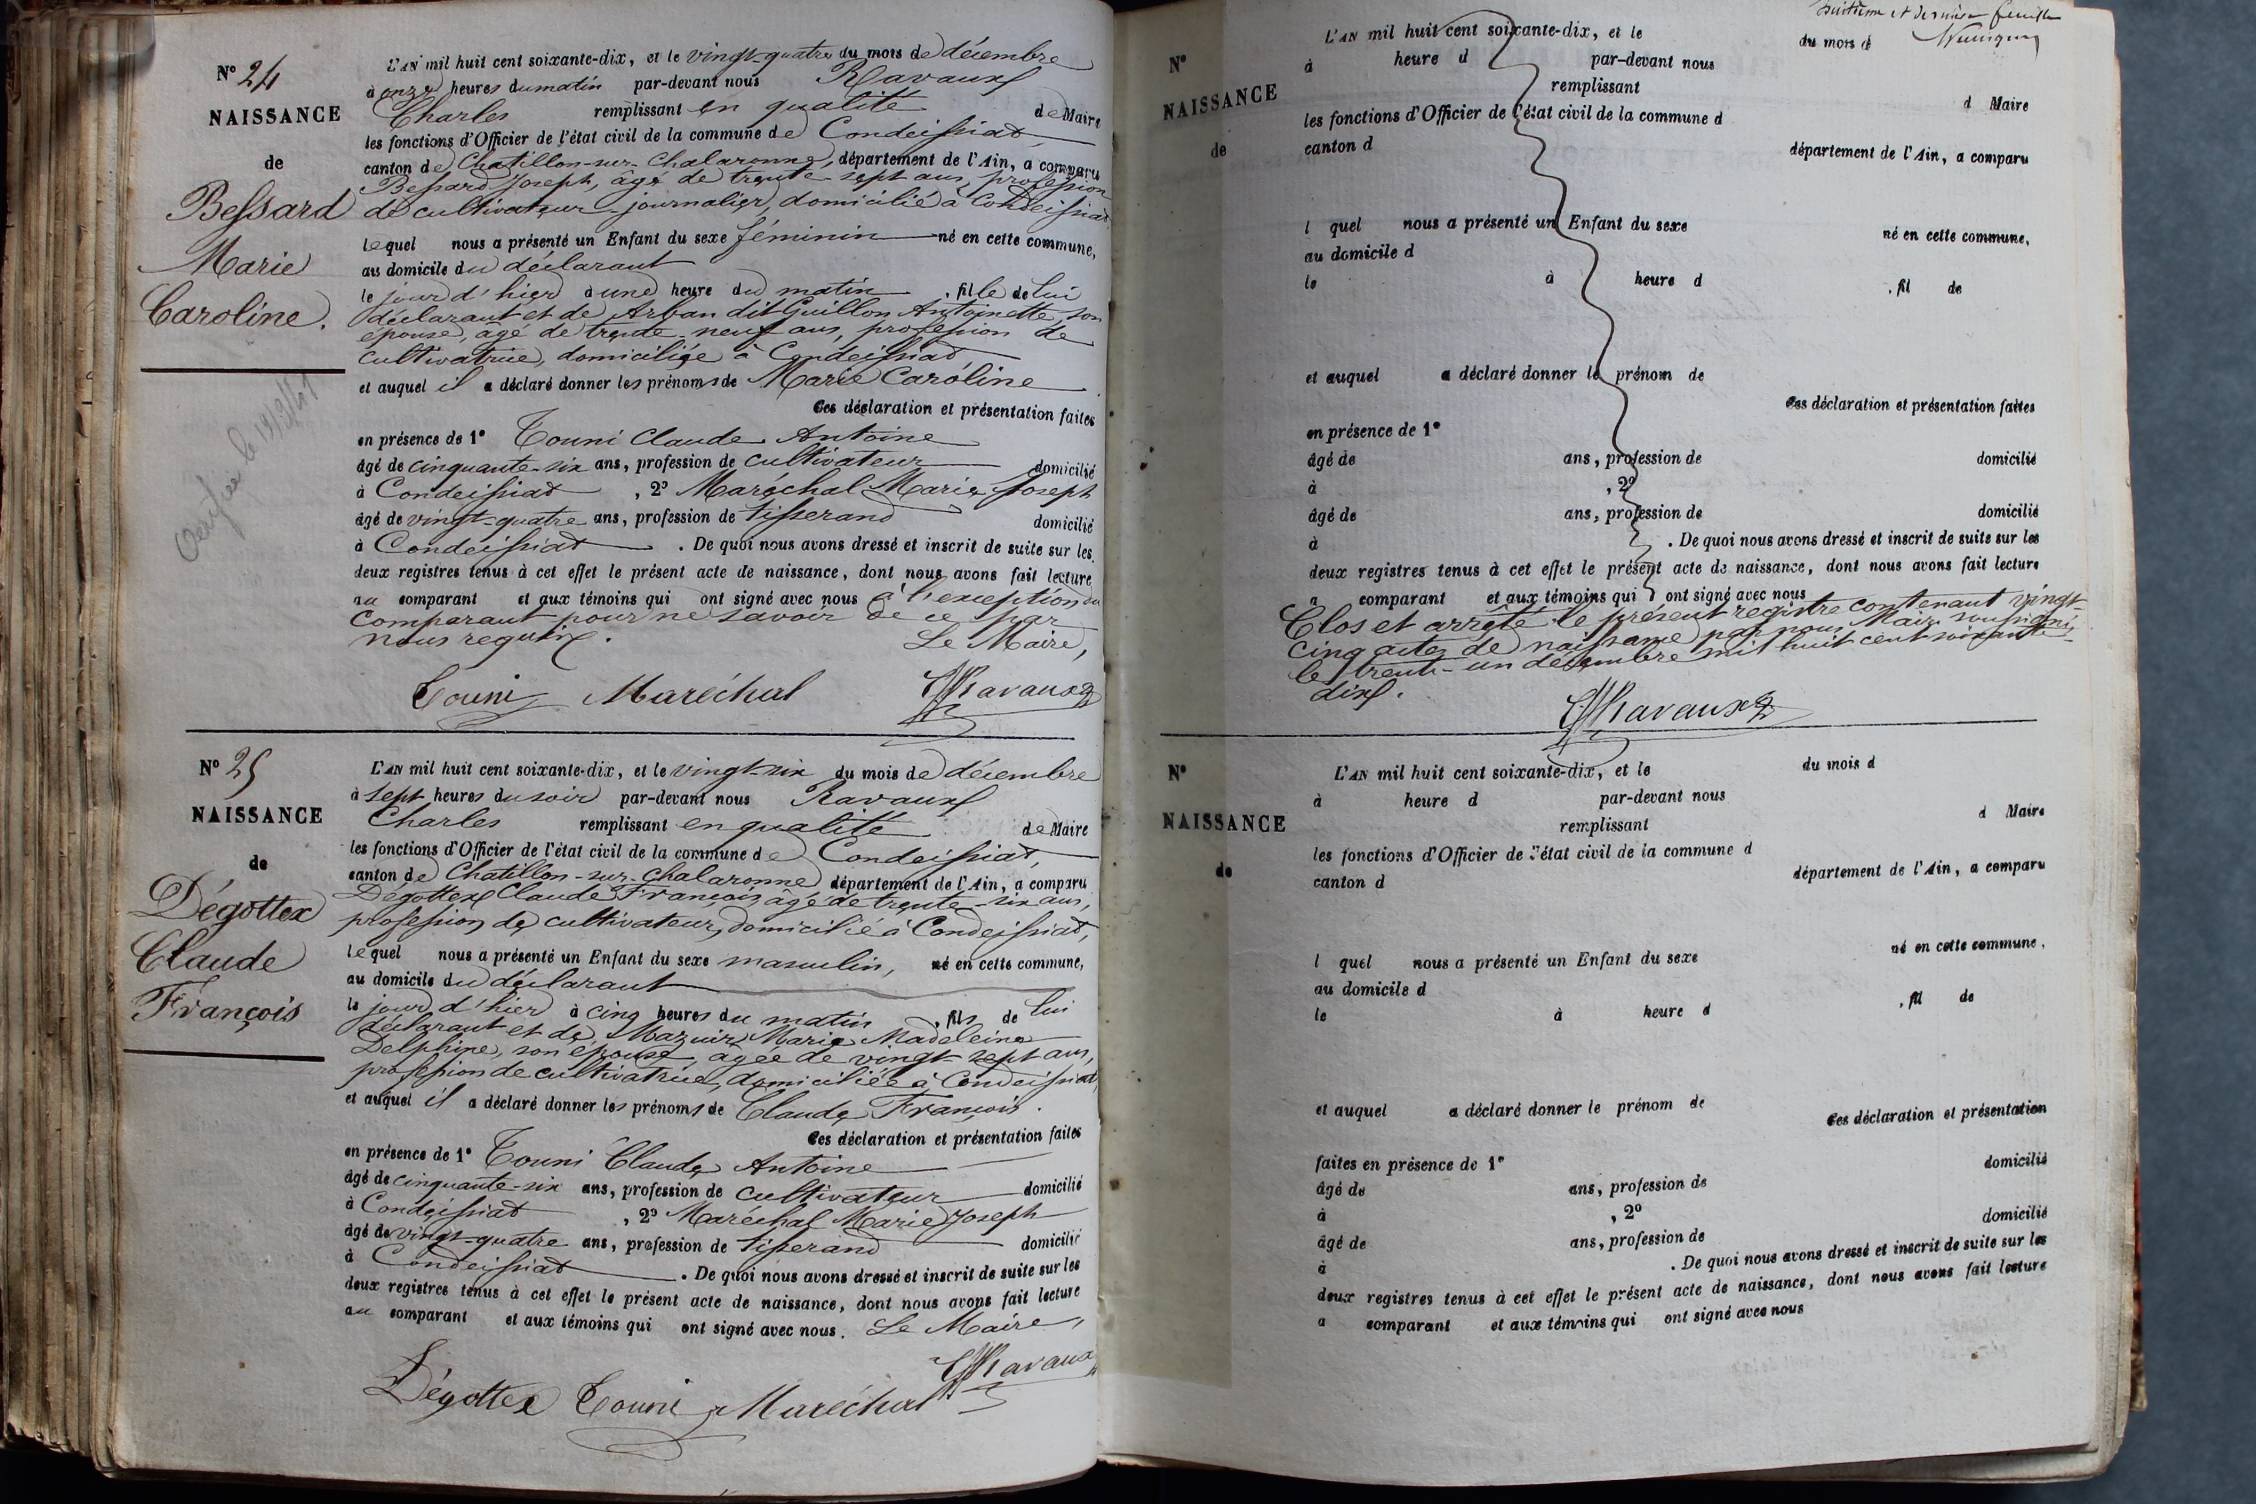 N° 24
NAISSANCE
de
Bessard
Marie
Caroline.
L'AN mil huit cent soixante-dix, et le vingt-quatre du mois de décembre
à onze heures du matin par-devant nous Ravaux
Charles remplissant en qualité de Maire
les fonctions d'Officier de l'état civil de la commune de Condeissiat
canton de Chatillon-sur-Chalaronne, département de l'Ain, a comparu
Bessard Joseph, âgé de trente-sept ans, profession
de cultivateur-journalier, domicilié à Condeissiat
lequel nous a présenté un Enfant du sexe féminin né en cette commune,
au domicile du déclarant
le jour d'hier à une heure du matin, fille de lui
déclarant et de Arban dit Guillon Antoinette, son
épouse, âgé de trente-neuf ans, profession de
cultivatrice, domiciliée à Condeissiat
et auquel il a déclaré donner les prénoms de Marie Caroline
Ces déclaration et présentation faites
en présence de 1° Touni Claude Antoine
âgé de cinquante-six ans, profession de cultivateur domicilié
à Condeissiat, 2° Maréchal Marie Joseph
âgé de vingt-quatre ans, profession de tisserand domicilié
à Condeissiat. De quoi nous avons dressé et inscrit de suite sur les
deux registres tenus à cet effet le présent acte de naissance, dont nous avons fait lecture
au comparant et aux témoins qui ont signé avec nous à l'exception du
comparant pour ne savoir de ce par
nous requix.
Le Maire,
Touni Maréchal Ravaux
N° 25
NAISSANCE
de
Dégottex
Claude
François
L'AN mil huit cent soixante-dix, et le vingt-six du mois de décembre
à sept heures du soir par-devant nous Ravaux
Charles remplissant en qualité de Maire
les fonctions d'Officier de l'état civil de la commune de Condeissiat,
canton de Chatillon-sur-Chalaronne département de l'Ain, a comparu
Dégottex Claude François âgé de trente-six ans,
profession de cultivateur, domicilié à Condeissiat,
lequel nous a présenté un Enfant du sexe masculin, né en cette commune,
au domicile du déclarant
le jour d'hier à cinq heures du matin, fils de lui
déclarant et de Mazuir Marie Madeleine
Delphine, son épouse, âgée de vingt-sept ans,
profession de cultivatrice, domiciliée à Condeissiat,
et auquel il a déclaré donner les prénoms de Claude François.
Ces déclaration et présentation faites
en présence de 1° Touni Claude Antoine
âgé de cinquante-six ans, profession de cultivateur domicilié
à Condeissiat, 2° Maréchal Marie Joseph
âgé de vingt-quatre ans, profession de tisserand domicilié
à Condeissiat. De quoi nous avons dressé et inscrit de suite sur les
deux registres tenus à cet effet le présent acte de naissance, dont nous avons fait lecture
au comparant et aux témoins qui ont signé avec nous. Le Maire,
Ravaux
Dégottex Touni Maréchal
et dernière feuille
N°
NAISSANCE
de
L'AN mil huit cent soixante-dix, et le du mois d
à heure d par-devant nous
remplissant d Maire
les fonctions d'Officier de l'état civil de la commune d
canton d département de l'Ain, a comparu
l quel nous a présenté un Enfant du sexe né en cette commune,
au domicile d
le à heure d , fil de
et auquel a déclaré donner le prénom de
Ces déclaration et présentation faites
en présence de 1°
âgé de ans, profession de domicilié
à , 2°
âgé de ans, profession de domicilié
à . De quoi nous avons dressé et inscrit de suite sur les
deux registres tenus à cet effet le présent acte de naissance, dont nous avons fait lecture
a comparant et aux témoins qui ont signé avec nous
Clos et arrêté le présent registre contenant vingt-
cinq actes de naissance par nous Maire soussigné,
le trente-un décembre mil huit cent soixante-
dix.
Ravaux
N°
NAISSANCE
de
L'AN mil huit cent soixante-dix, et le du mois d
à heure d par-devant nous
remplissant d Maire
les fonctions d'Officier de l'état civil de la commune d
canton d département de l'Ain, a comparu
l quel nous a présenté un Enfant du sexe né en cette commune,
au domicile d
le à heure d , fil de
et auquel a déclaré donner le prénom de
Ces déclaration et présentation
faites en présence de 1° domicilié
âgé de ans, profession de
à , 2° domicilié
âgé de ans, profession de
à . De quoi nous avons dressé et inscrit de suite sur les
deux registres tenus à cet effet le présent acte de naissance, dont nous avons fait lecture
a comparant et aux témoins qui ont signé avec nous